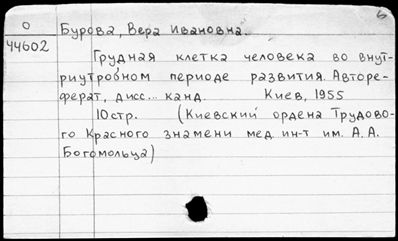 б
О Бурова, Вера Ивановна.
44602
Грудная клетка человека во внут-
риутробном периоде развития. Авторе-
ферат, дисс... канд. Киев, 1955
10стр. (Киевский ордена Трудово-
го Красного знамени мед. ин-т им. А.А.
Богомольца)